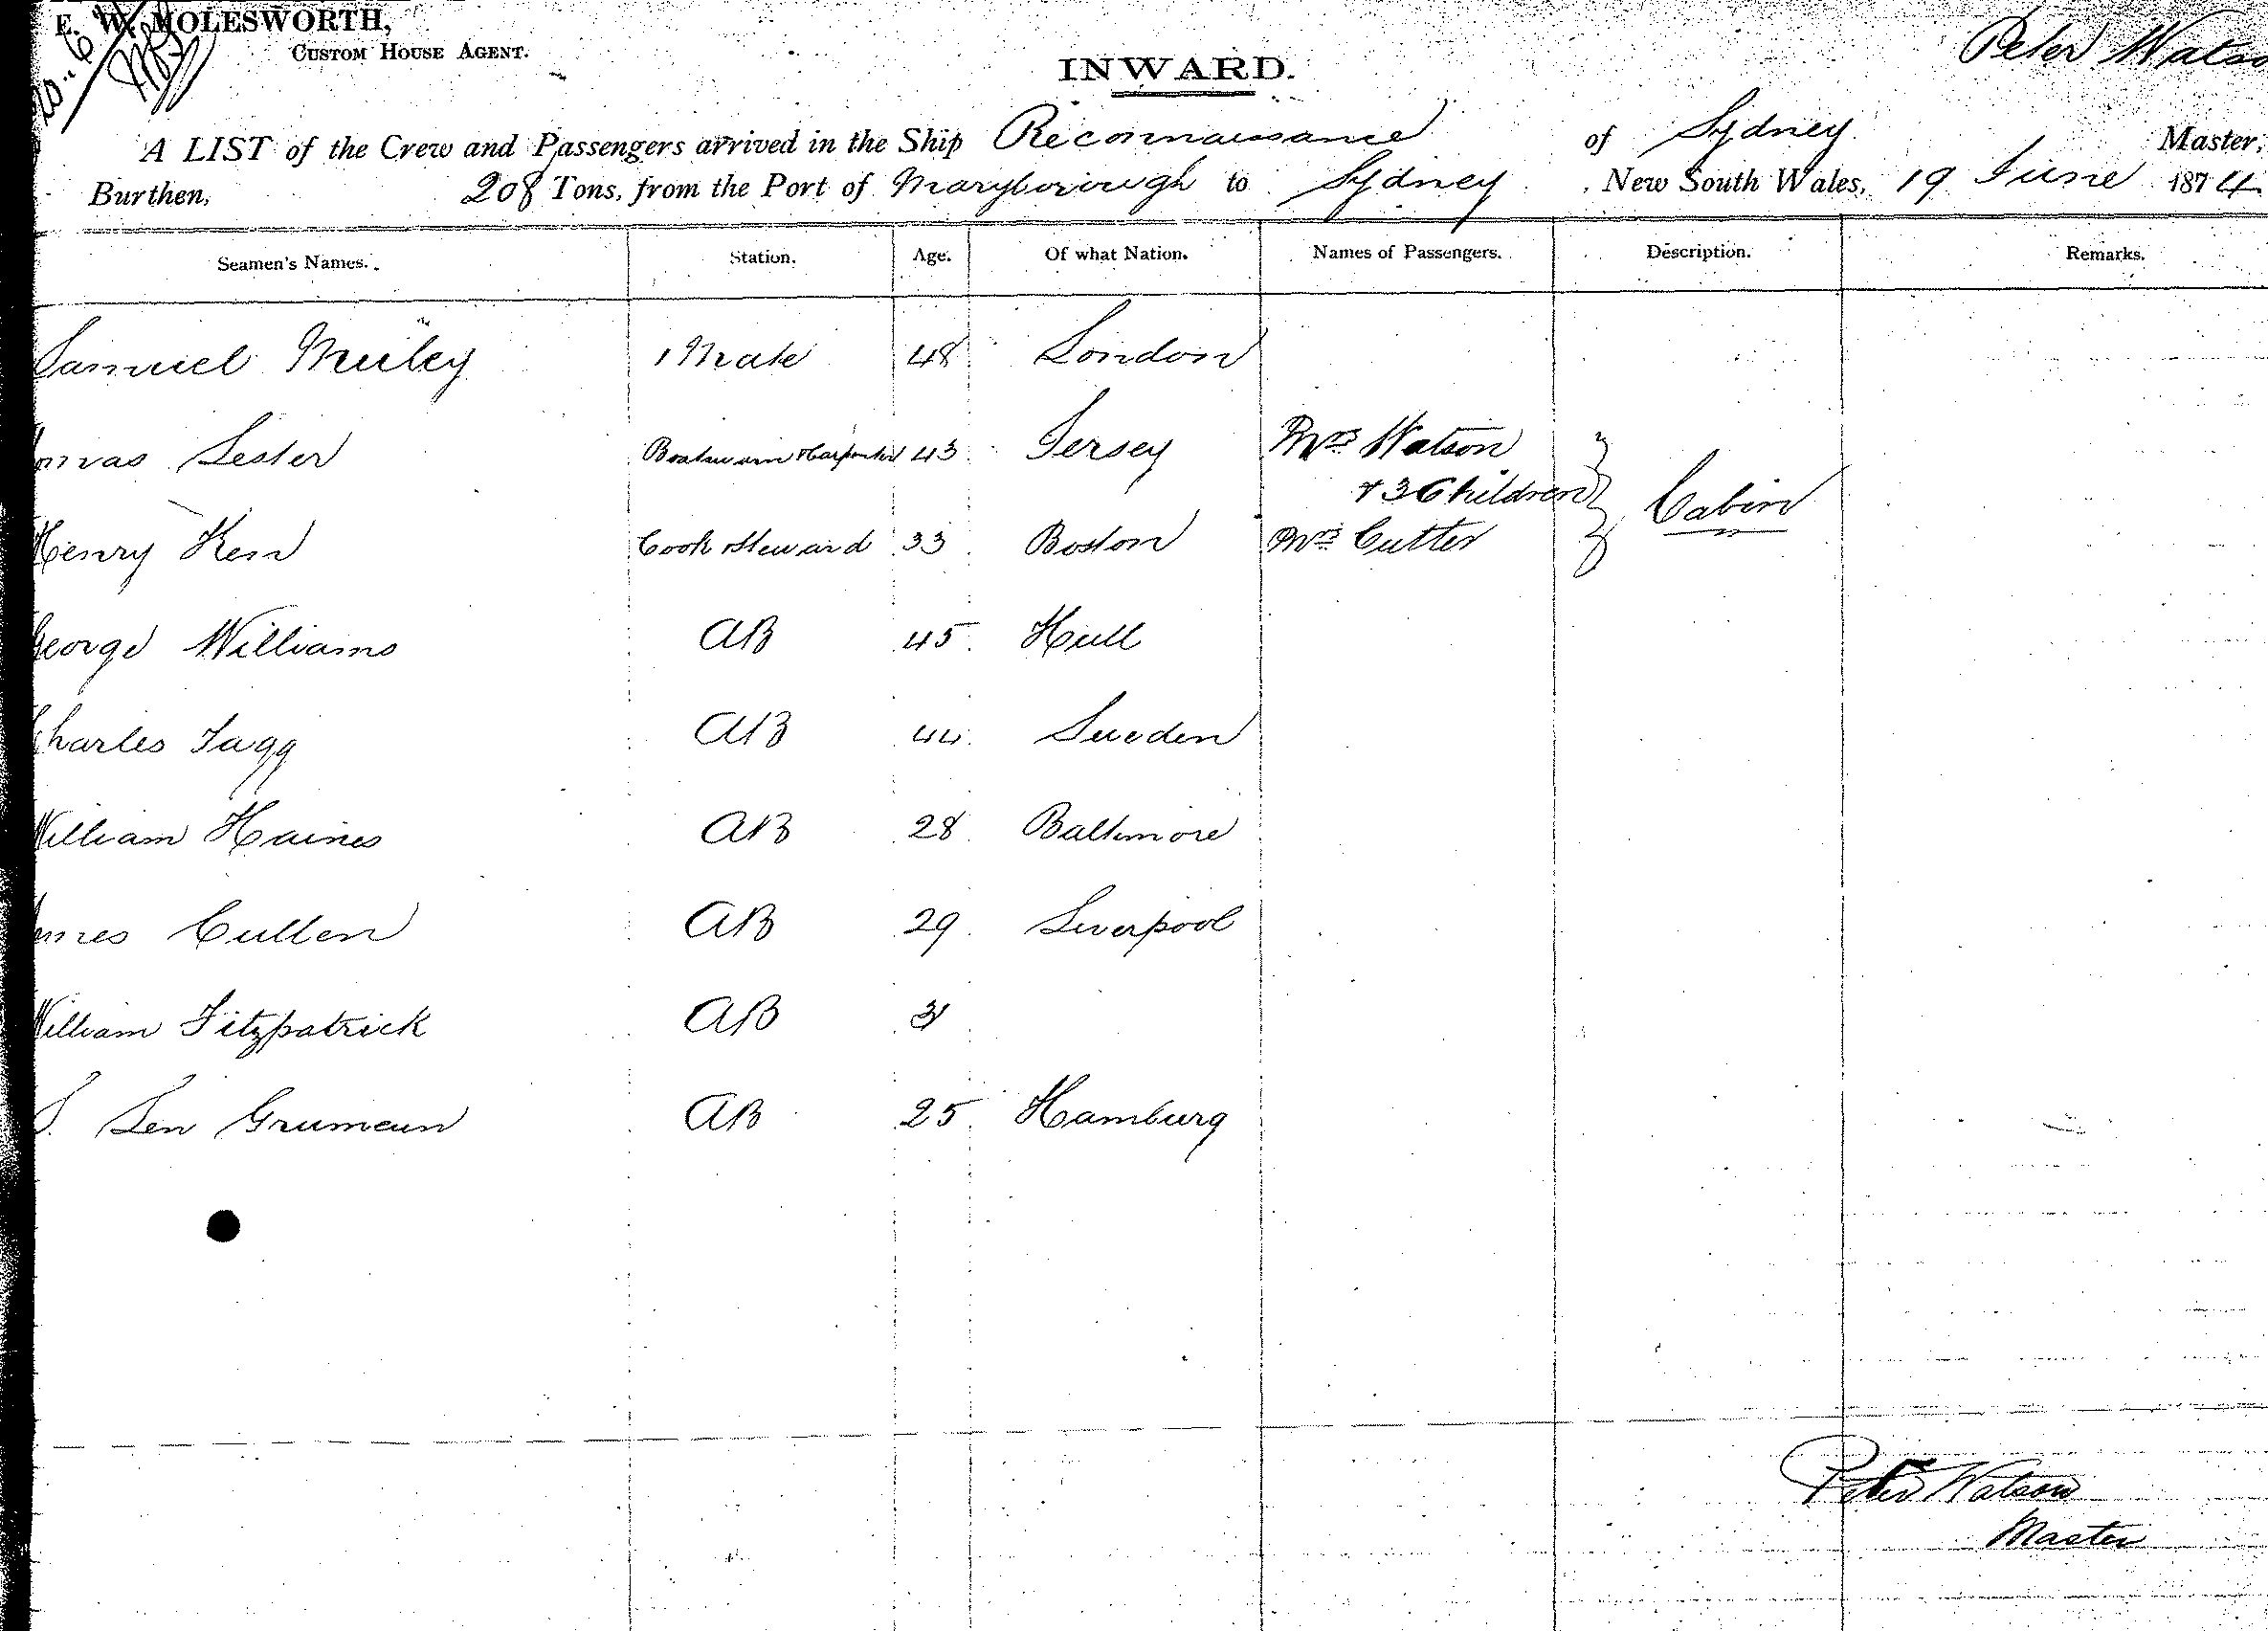 E. W. MOLESWORTH,
CUSTOM HOUSE AGENT.
INWARD.
Peter Watso
A LIST of the Crew and Passengers arrived in the Ship Reconnaissance of Sydney Master,
Burthen, 208 Tons, from the Port of Maryborough to Sydney, New South Wales, 19 June 1874
Seamen's Names. Station. Age. Of what Nation. Names of Passengers. Description. Remarks.
Samuel 1 Mate 48 London
omas Lester Boatswain & Carpenter 43 Jersey Mrs Watson
& 3 Children Cabin
Henry Kerr Cook & Steward 33 Boston Mrs Cutter
George Williams AB 45 Hull
Charles Tagg AB 44 Sweden
William Haines AB 28 Baltimore
ames Cullen AB 29 Liverpool
William Fitzpatrick AB 31
Len AB 25 Hamburg
Peter Watson
Master